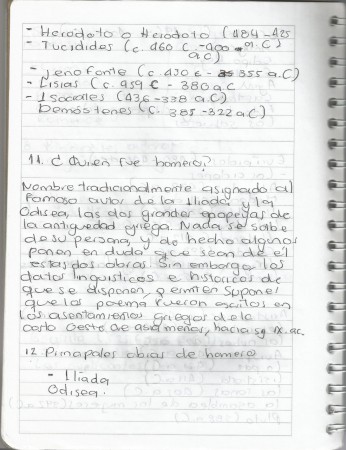 - Herodoto o Heriodoto (484-425 a.C)
- Tucidides (c. 460 C -400 a.C)
- Jenofonte (c. 430 6 - 355 a.C)
- Lisias (c. 459 € - 380 a.C
- Isocrates (436-338 a.C)
Demóstenes (c. 385-322 a.C)
11. ¿Quien fue homero?
Nombre tradicionalmente asignado al
Famoso autor de la Iliada y la
Odisea, las dos grandes epopeyas de
la antiguedad griega. Nada se sabe
de su persona, y de hecho algunos
ponen en duda que sean de él
estas dos obras Sin embargo, los
datos linguisticos e historicos de
que se disponen, permiten suponer
que los poema fueron escritos en
los asentamientos griegos de la
costa oeste de asia menor, hacia sg IX. a.c.
12 Pinapales obias de homero
- Iliada
Odisea.